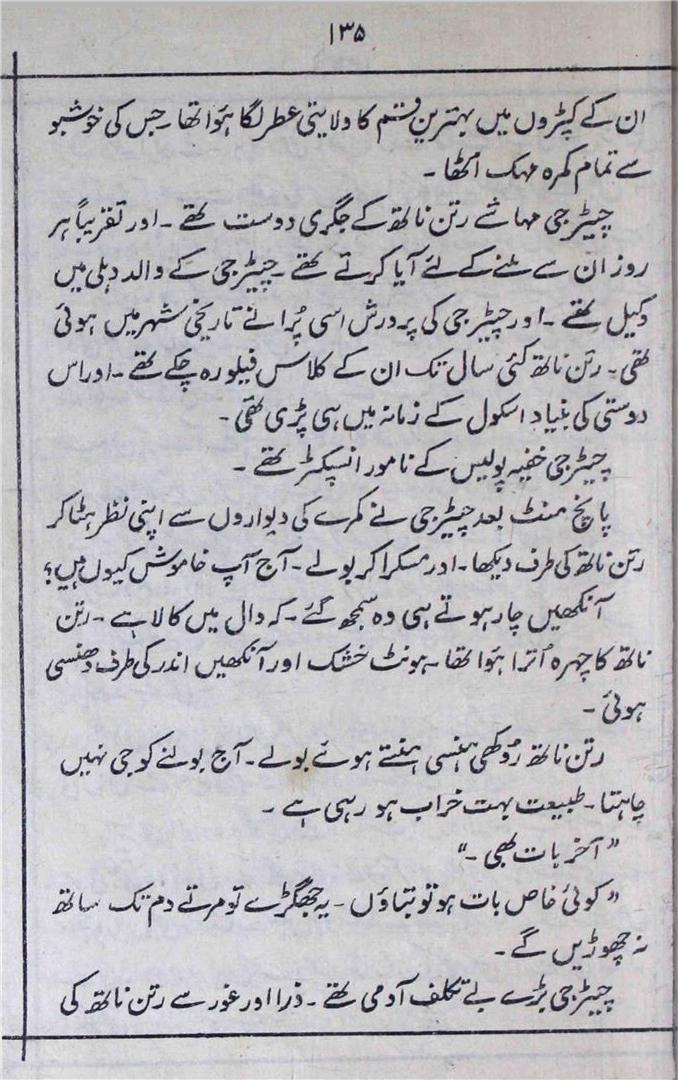 ۱۳۵
ان کے کپڑوں میں بہترین قسم کا ولایتی عطر لگا ہوا تھا۔ جس کی خوشبو
سے تمام کمرہ مہک اُٹھا۔
چیٹرجی مہاشے رتن ناتھ کے جگری دوست تھے۔ اور تقریباً ہر
روز ان سے ملنے کے لئے آیا کرتے تھے۔ چیٹرجی کے والد دہلی میں
وکیل تھے۔ اور چیٹرجی کی پرورش اسی پُرانے تاریخی شہر میں ہوئی
تھی۔ رتن ناتھ کئی سال تک ان کے کلاس فیلو رہ چکے تھے۔ اور اس
دوستی کی بنیاد اسکول کے زمانہ میں ہی پڑی تھی۔
چیٹرجی خفیہ پولیس کے نامور انسپکٹر تھے۔
پانچ منٹ بعد چیٹرجی نے کمرے کی دیواروں سے اپنی نظر ہٹا کر
رتن ناتھ کی طرف دیکھا۔ اور مسکرا کر بولے۔ آج آپ خاموش کیوں ہیں؟
آنکھیں چار ہوتے ہی وہ سمجھ گئے۔ کہ دال میں کالا ہے۔ رتن
ناتھ کا چہرہ اُترا ہوا تھا۔ ہونٹ خشک اور آنکھیں اندر کی طرف دھنسی
ہوئی۔
رتن ناتھ رُوکھی ہنسی ہنستے ہوئے بولے۔ آج بولنے کو جی نہیں
چاہتا۔ طبیعت بہت خراب ہو رہی ہے۔
"آخر بات بھی۔"
"کوئی خاص بات ہو تو بتاؤں۔ یہ جھگڑے تو مرتے دم تک ساتھ
نہ چھوڑیں گے۔
چیٹرجی بڑے بے تکلف آدمی تھے۔ ذرا اور غور سے رتن ناتھ کی